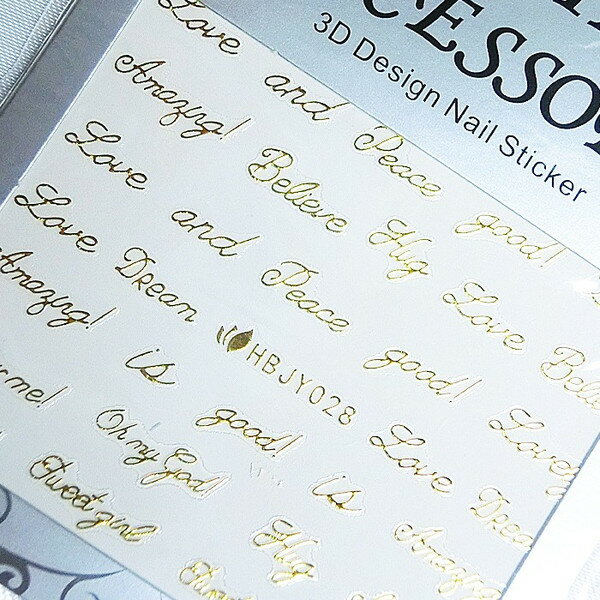 3D Design Nail Sticker
Love and Peace good!
Amazing! Believe Hug Love
Love and Peace good! Love
Love Dream HBJY028 Love Dream
Amazing! is good! is Amazing!
me! Oh my God! Hug
Sweet girl